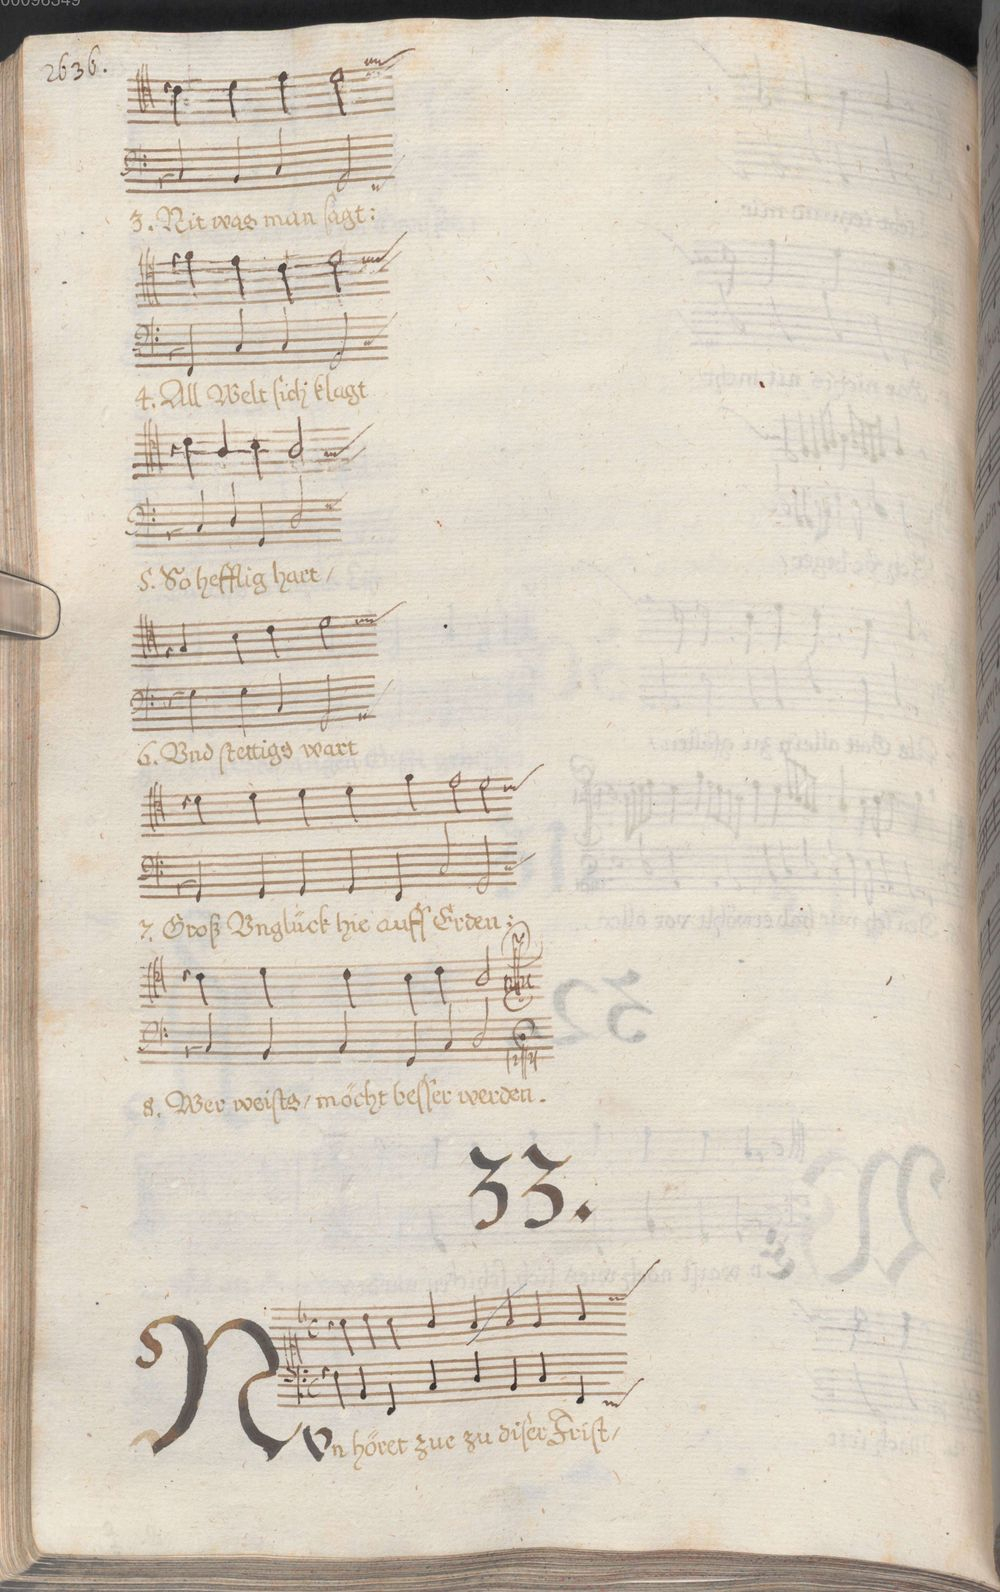 00096349
2636.
3. Nit was man sagt:
4. All Welt sich klagt
5. So hefftig hart /
6. Vnd stettigs wart
7. Groß Vnglück hie auff Erden:
8. Wer weists / möcht besser werden.
33.
Nvn höret zue zu diser Frist /